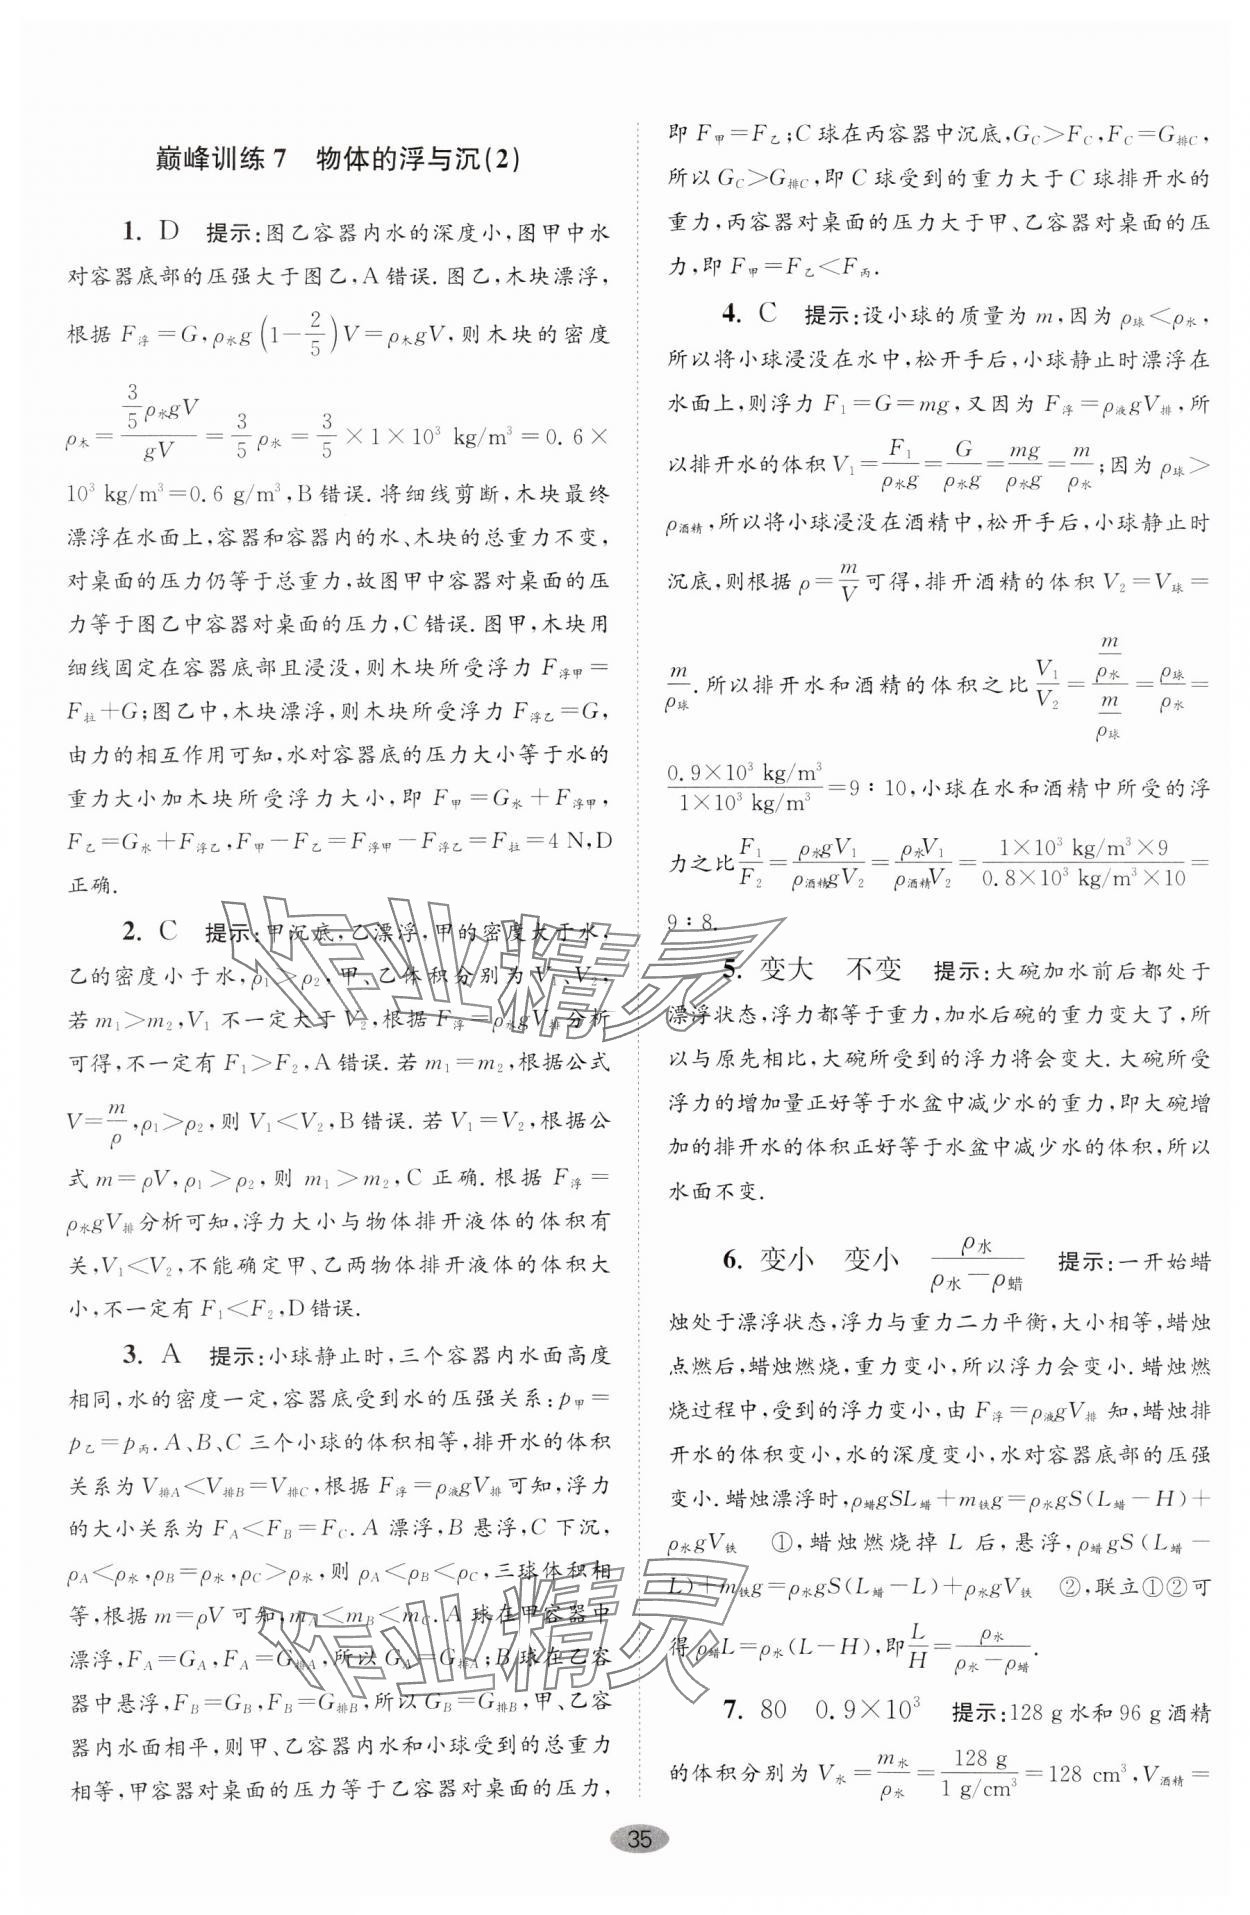 巅峰训练7　物体的浮与沉(2)
1. D　提示:图乙容器内水的深度小,图甲中水
对容器底部的压强大于图乙,A错误.图乙,木块漂浮,
根据 F浮=G,ρ水g(1-2/5)V=ρ木gV,则木块的密度
ρ木=(3/5 ρ水gV)/(gV)=3/5 ρ水=3/5×1×10³ kg/m³=0.6×
10³ kg/m³=0.6 g/m³,B错误.将细线剪断,木块最终
漂浮在水面上,容器和容器内的水、木块的总重力不变,
对桌面的压力仍等于总重力,故图甲中容器对桌面的压
力等于图乙中容器对桌面的压力,C错误.图甲,木块用
细线固定在容器底部且浸没,则木块所受浮力 F浮甲=
F拉+G;图乙中,木块漂浮,则木块所受浮力 F浮乙=G,
由力的相互作用可知,水对容器底的压力大小等于水的
重力大小加木块所受浮力大小,即 F甲=G水+F浮甲,
F乙=G水+F浮乙,F甲-F乙=F浮甲-F浮乙=F拉=4 N,D
正确.
2. C　提示:甲沉底,乙漂浮,甲的密度大于水,
乙的密度小于水,ρ1>ρ2,甲、乙体积分别为 V1、V2,
若 m1>m2,V1 不一定大于 V2,根据 F浮=ρ水gV排分析
可得,不一定有 F1>F2,A错误.若 m1=m2,根据公式
V=m/ρ,ρ1>ρ2,则 V1<V2,B错误.若 V1=V2,根据公
式 m=ρV,ρ1>ρ2,则 m1>m2,C正确.根据 F浮=
ρ水gV排分析可知,浮力大小与物体排开液体的体积有
关,V1<V2,不能确定甲、乙两物体排开液体的体积大
小,不一定有 F1<F2,D错误.
3. A　提示:小球静止时,三个容器内水面高度
相同,水的密度一定,容器底受到水的压强关系:p甲=
p乙=p丙.A、B、C三个小球的体积相等,排开水的体积
关系为 V排A<V排B=V排C,根据 F浮=ρ液gV排可知,浮力
的大小关系为 FA<FB=FC.A漂浮,B悬浮,C下沉,
ρA<ρ水,ρB=ρ水,ρC>ρ水,则 ρA<ρB<ρC,三球体积相
等,根据 m=ρV可知,mA<mB<mC.A球在甲容器中
漂浮,FA=GA,FA=G排A,所以 GA=G排A;B球在乙容
器中悬浮,FB=GB,FB=G排B,所以 GB=G排B,甲、乙容
器内水面相平,则甲、乙容器内水和小球受到的总重力
相等,甲容器对桌面的压力等于乙容器对桌面的压力,
即 F甲=F乙;C球在丙容器中沉底,GC>FC,FC=G排C,
所以 GC>G排C,即C球受到的重力大于C球排开水的
重力,丙容器对桌面的压力大于甲、乙容器对桌面的压
力,即 F甲=F乙<F丙.
4. C　提示:设小球的质量为 m,因为 ρ球<ρ水,
所以将小球浸没在水中,松开手后,小球静止时漂浮在
水面上,则浮力 F1=G=mg,又因为 F浮=ρ液gV排,所
以排开水的体积 V1=F1/(ρ水g)=G/(ρ水g)=mg/(ρ水g)=m/ρ水;因为 ρ球>
ρ酒精,所以将小球浸没在酒精中,松开手后,小球静止时
沉底,则根据 ρ=m/V可得,排开酒精的体积 V2=V球=
m/ρ球.所以排开水和酒精的体积之比 V1/V2=(m/ρ水)/(m/ρ球)=ρ球/ρ水=
(0.9×10³ kg/m³)/(1×10³ kg/m³)=9∶10,小球在水和酒精中所受的浮
力之比 F1/F2=(ρ水gV1)/(ρ酒精gV2)=(ρ水V1)/(ρ酒精V2)=(1×10³ kg/m³×9)/(0.8×10³ kg/m³×10)=
9∶8.
5. 变大　不变　提示:大碗加水前后都处于
漂浮状态,浮力都等于重力,加水后碗的重力变大了,所
以与原先相比,大碗所受到的浮力将会变大.大碗所受
浮力的增加量正好等于水盆中减少水的重力,即大碗增
加的排开水的体积正好等于水盆中减少水的体积,所以
水面不变.
6. 变小　变小　ρ水/(ρ水-ρ蜡)　提示:一开始蜡
烛处于漂浮状态,浮力与重力二力平衡,大小相等,蜡烛
点燃后,蜡烛燃烧,重力变小,所以浮力会变小.蜡烛燃
烧过程中,受到的浮力变小,由 F浮=ρ液gV排 知,蜡烛排
开水的体积变小,水的深度变小,水对容器底部的压强
变小.蜡烛漂浮时,ρ蜡gSL蜡+m铁g=ρ水gS(L蜡-H)+
ρ水gV铁　①,蜡烛燃烧掉 L 后,悬浮,ρ蜡gS(L蜡-
L)+m铁g=ρ水gS(L蜡-L)+ρ水gV铁　②,联立①②可
得 ρ蜡L=ρ水(L-H),即 L/H=ρ水/(ρ水-ρ蜡).
7. 80　0.9×10³　提示:128 g水和96 g酒精
的体积分别为 V水=m水/ρ水=128 g/(1 g/cm³)=128 cm³,V酒精=
35
作业精灵
作业精灵